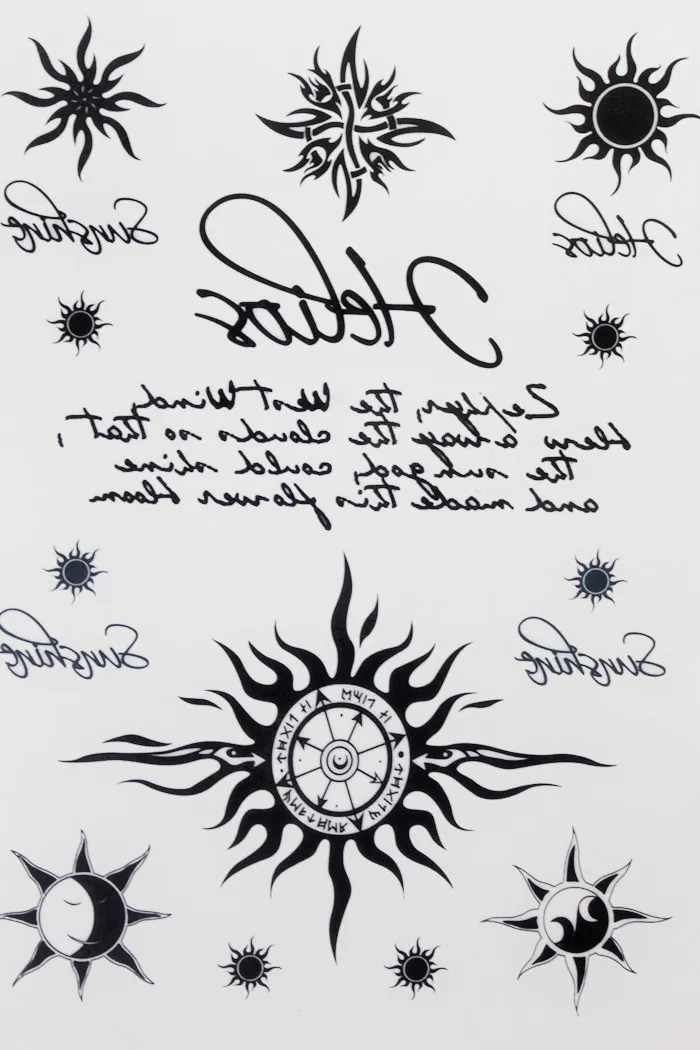 Sunshine
Helios
Helios
Zephyr, the West Wind,
blew away the clouds so that,
the sun god, could shine
and made this flower bloom
Sunshine
Sunshine